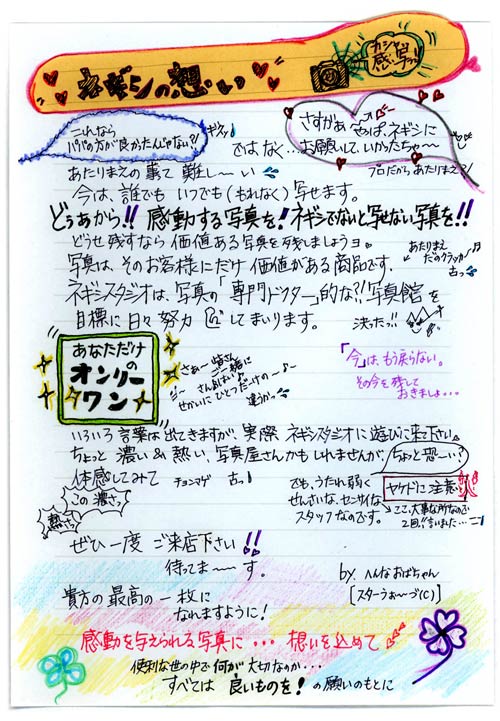 ネギシの想い
カシャッ
感写ッ
これなら
パパの方が良かったんじゃない?!
ギクッ
ではなく…
さすがぁ〜
やっぱ、ネギシに
お願いして、いかったちゃ〜
プロだから、あたりまえ?!
あたりまえの事て難し〜い
今は、誰でもいつでも(もれなく)写せます。
どぅあから!!感動する写真を!ネギシでないと写せない写真を!!
どうせ残すなら価値ある写真を残しましょうヨ。
写真は、そのお客様にだけ価値がある商品です。
あたりまえ
だのクラッカー
古っ
ネギシスタジオは、写真の「専門ドクター」的な?!写真館を
目標に日々努力してまいります。
決たっ!!
あなただけ
の
オンリー
ワン
さぁ〜皆さん
ご一緒に
さんおはい
せかいにひとつだけの〜
違うかっ
「今」は、もう戻らない。
その今を残して
おきましょ…
いろいろ言葉は出てきますが、実際ネギシスタジオに遊びに来て下さい。
ちょっと濃い&熱い、写真屋さんかもしれませんが、
ちょっと恐〜い?
体感してみて
チョンマゲ
古っ
この濃さっ
熱さっ
でも、うたれ弱く
せんさいな、センサイな
スタッフなのです。
ヤケドに注意
ここ、大事な所なので
2回!!言いました…
ぜひ一度ご来店下さい!!
待ってま〜〜す。
by.へんなおばちゃん
[スターうぉ〜づ(C)]
貴方の最高の一枚に
なれますように!
感動を与えられる写真に…想いを込めて
便利な世の中で何が大切なのか…
すべては良いものを!の願いのもとに